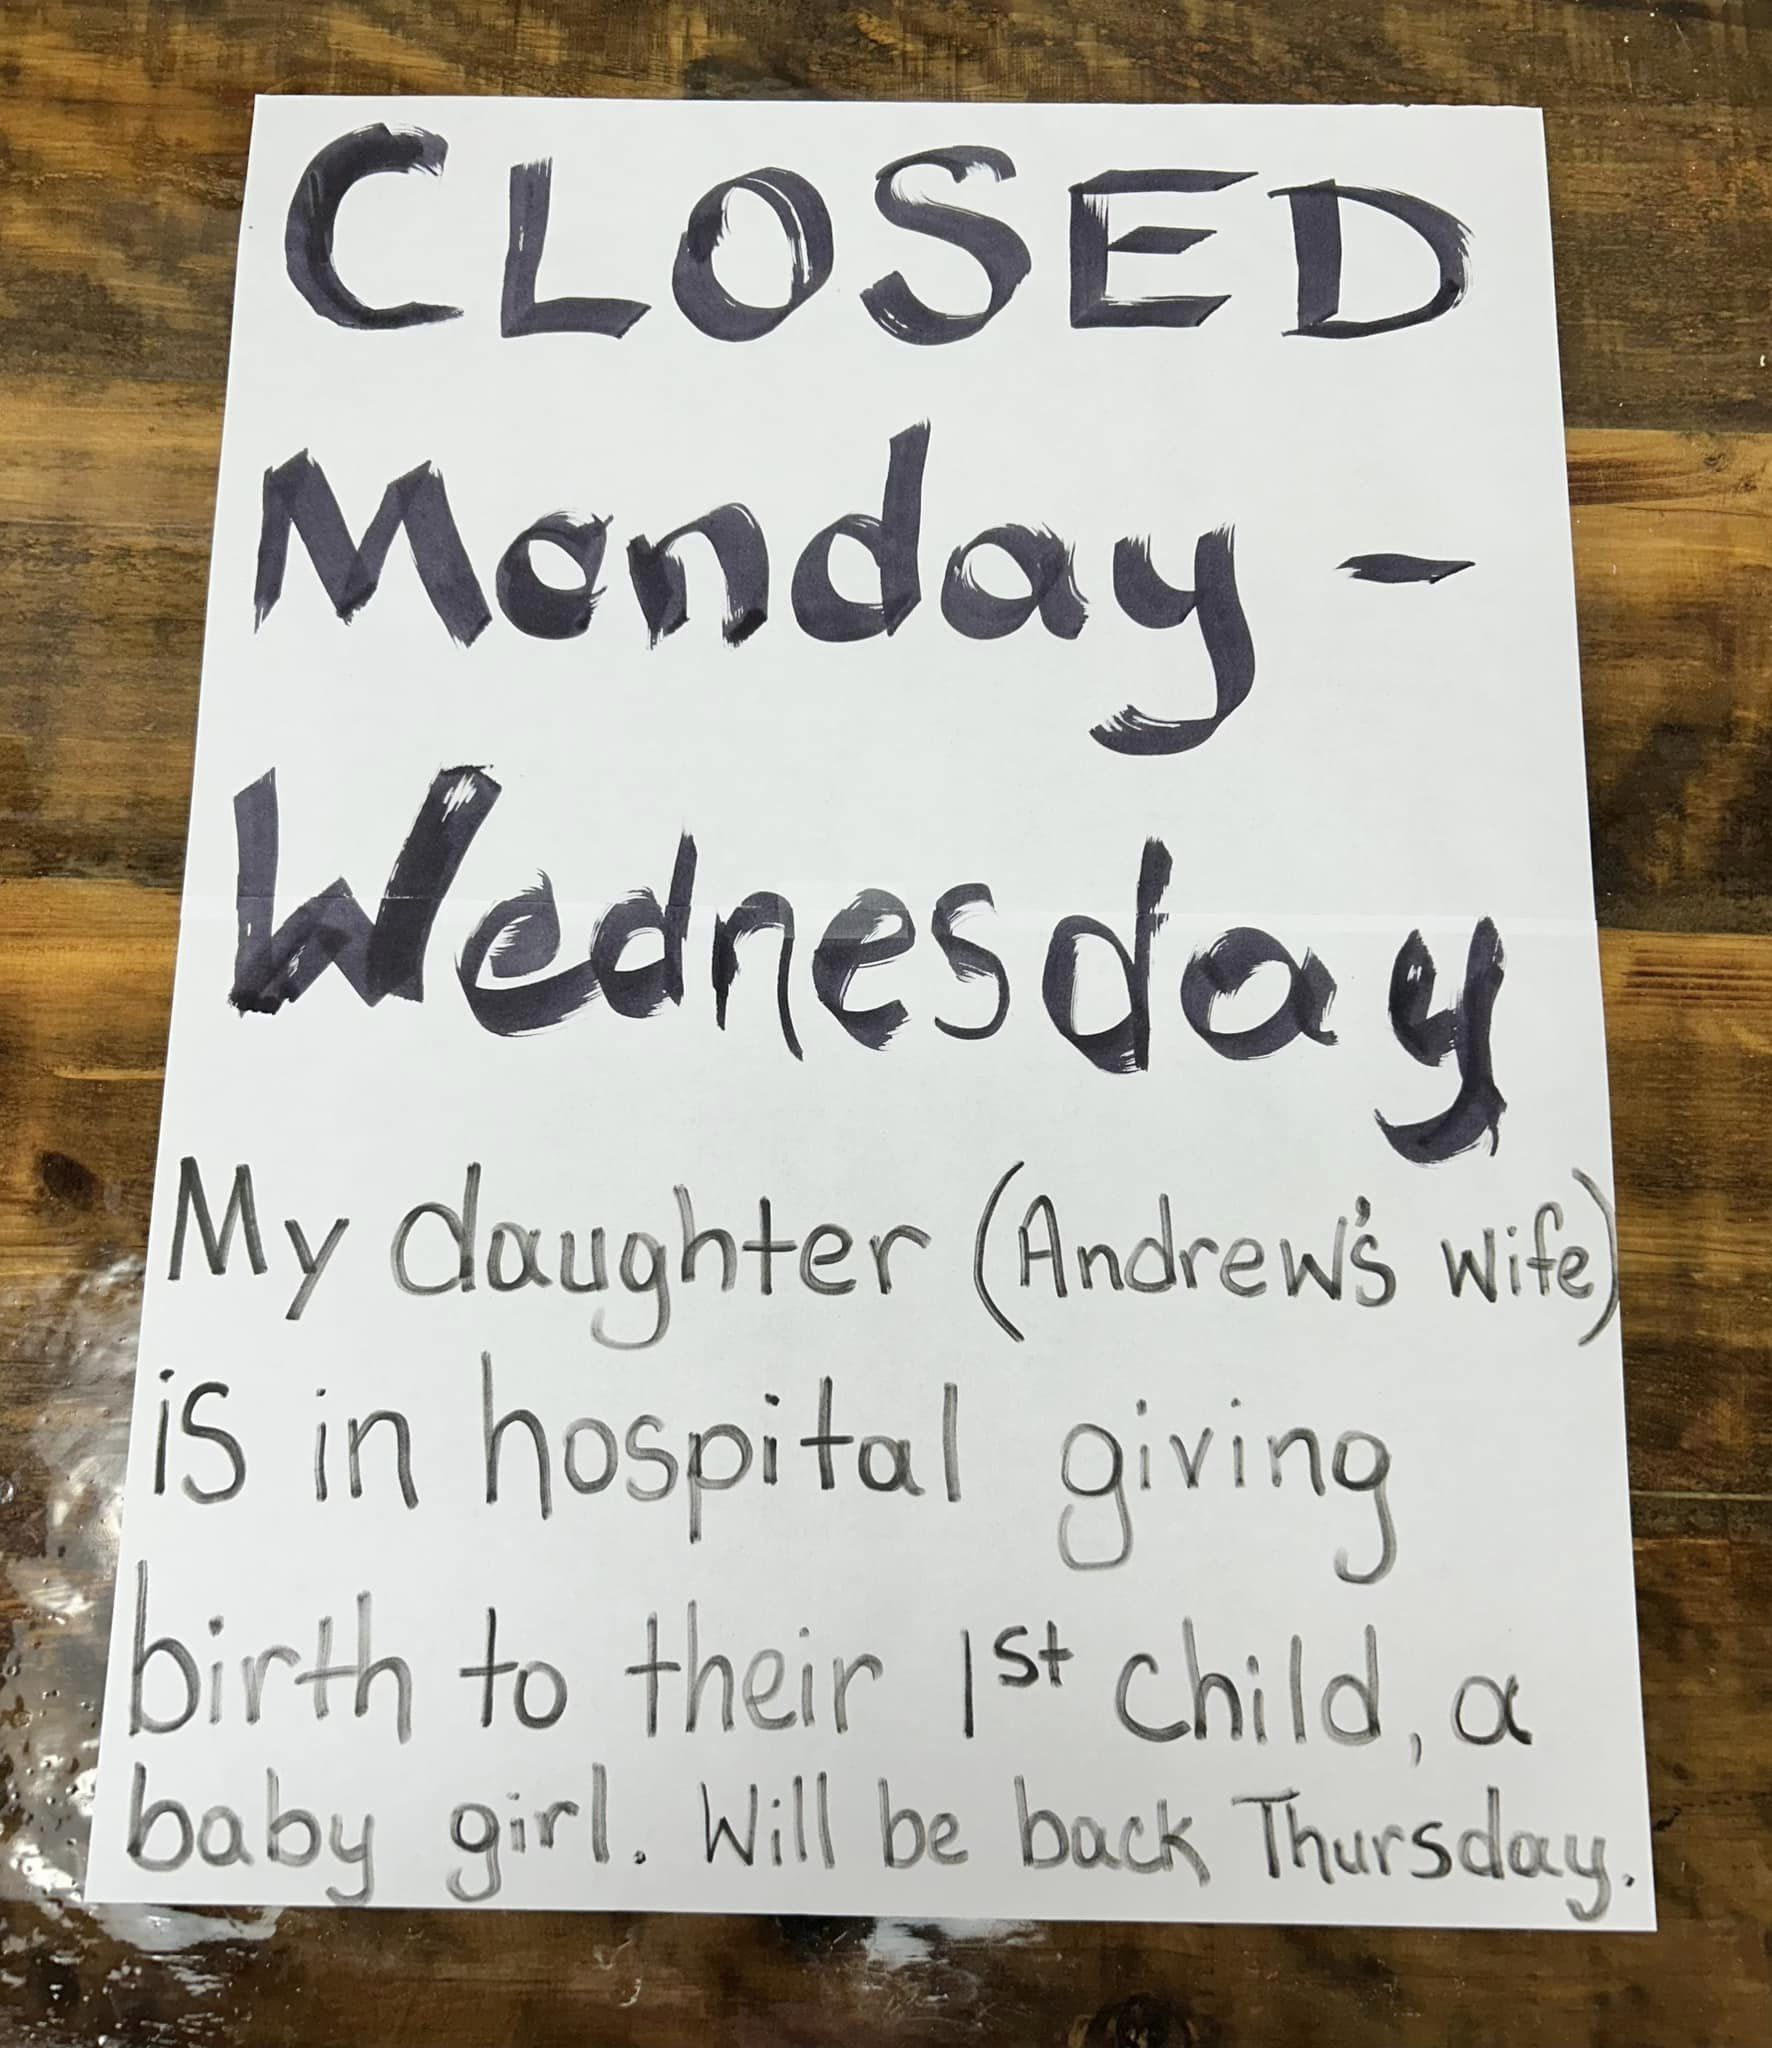 CLOSED
Monday -
Wednesday
My daughter (Andrew's wife)
is in hospital giving
birth to their 1st child, a
baby girl. Will be back Thursday.